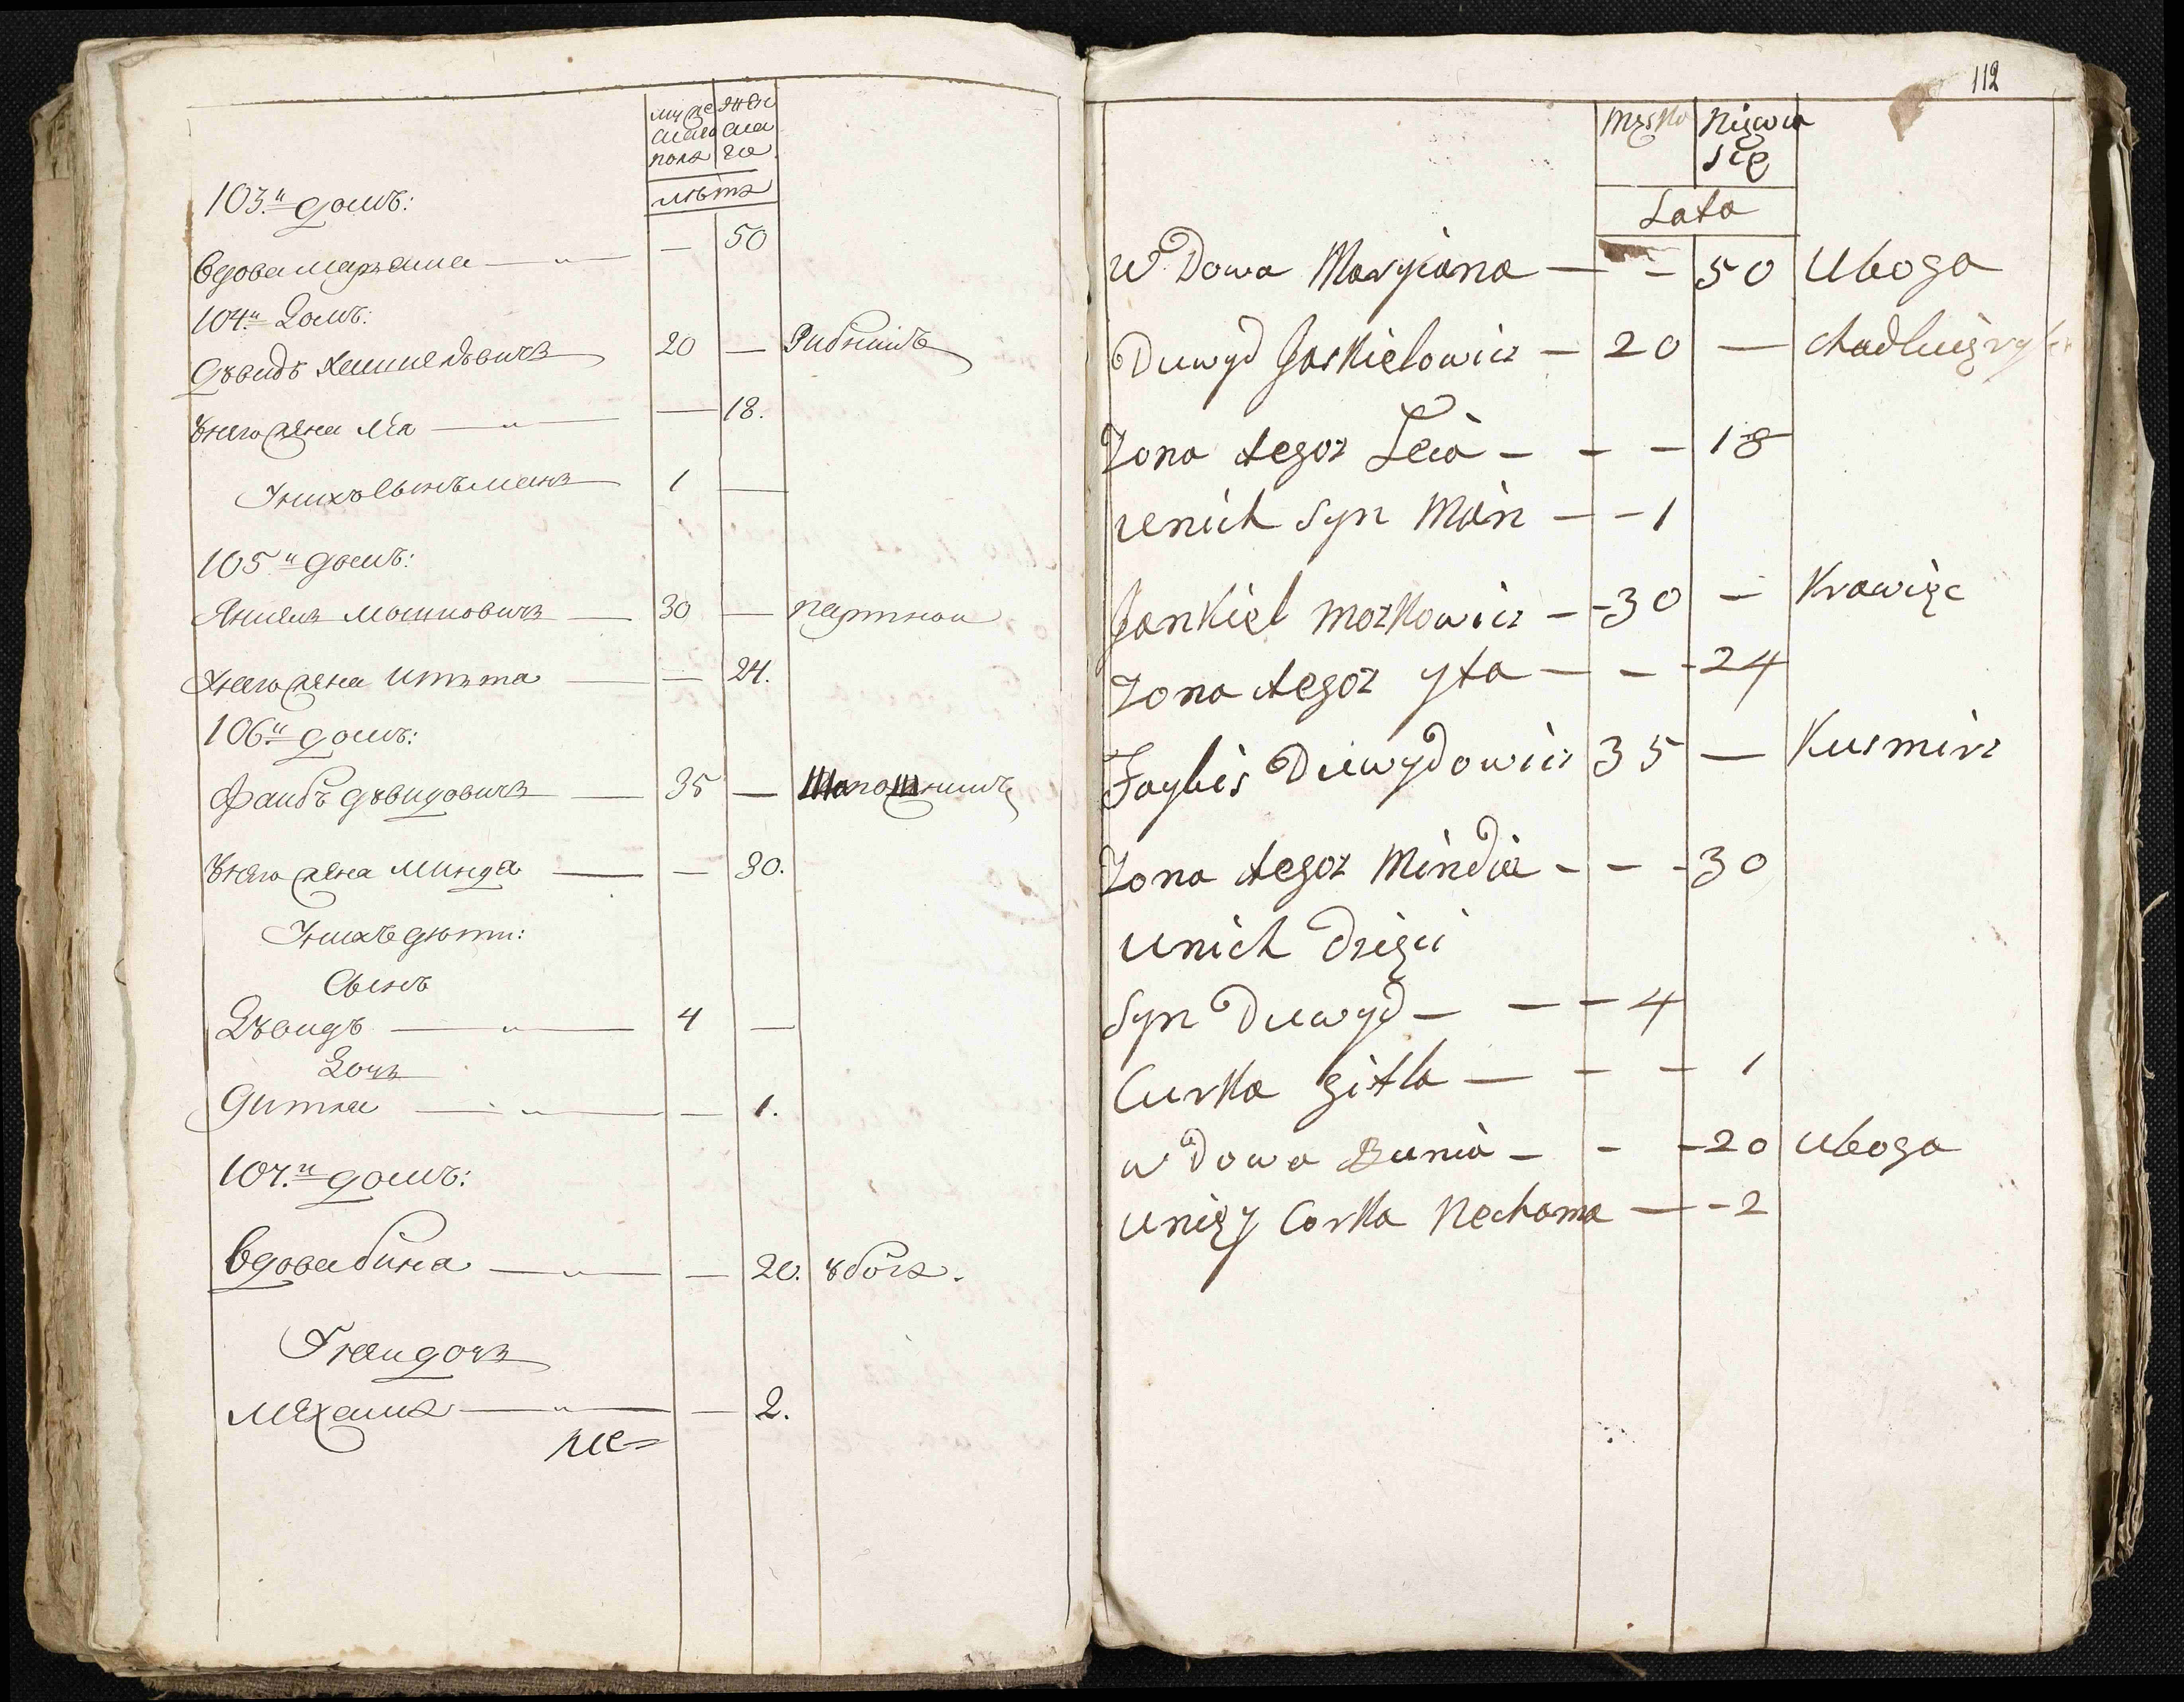 муже женс
скаго ска
пола го
лѣта
103.й домъ:
вдова марьяна — — 50
104.й Домъ:
Дъвидъ Хацкилевичъ 20 — Рибникъ
ȣнего жена лѣа — — 18.
Унихъ сынъ манъ 1 —
105.й домъ:
Янкель мошковичъ — 30 — партнои
Унего жена итъта — — 24.
106.й домъ:
Фаибъ дъвидовичъ — 35 — Шапошникъ
ȣнего жена минда — — 30.
Унихъ дѣти:
Сынъ
Дъвидъ — 4 —
Дочъ
Гитла — — 1.
107.й домъ:
вдова буна — — 20. ȣбога.
Унеи дочъ
Нехама — — 2.
112
męsko Niewia
się
Lata
W Dowa Maryiana — — 50 Uboga
Duwyd Jaskielowicz — 20 —
Zona tegoz Leia — — — 18
unich Syn Man — — 1
Jankiel Moszkowicz — 30 — Krawięc
Zona tegoz yta — — — 24
Faybis Duwydowicz 35 — Kusmirz
Zona tegoz Mindia — — — 30
unich dzięci
Syn Duwyd — — — 4
Curka gitla — — — 1
w dowa Bunia — — — 20 uboga
unięy Corka Nechama — — 2